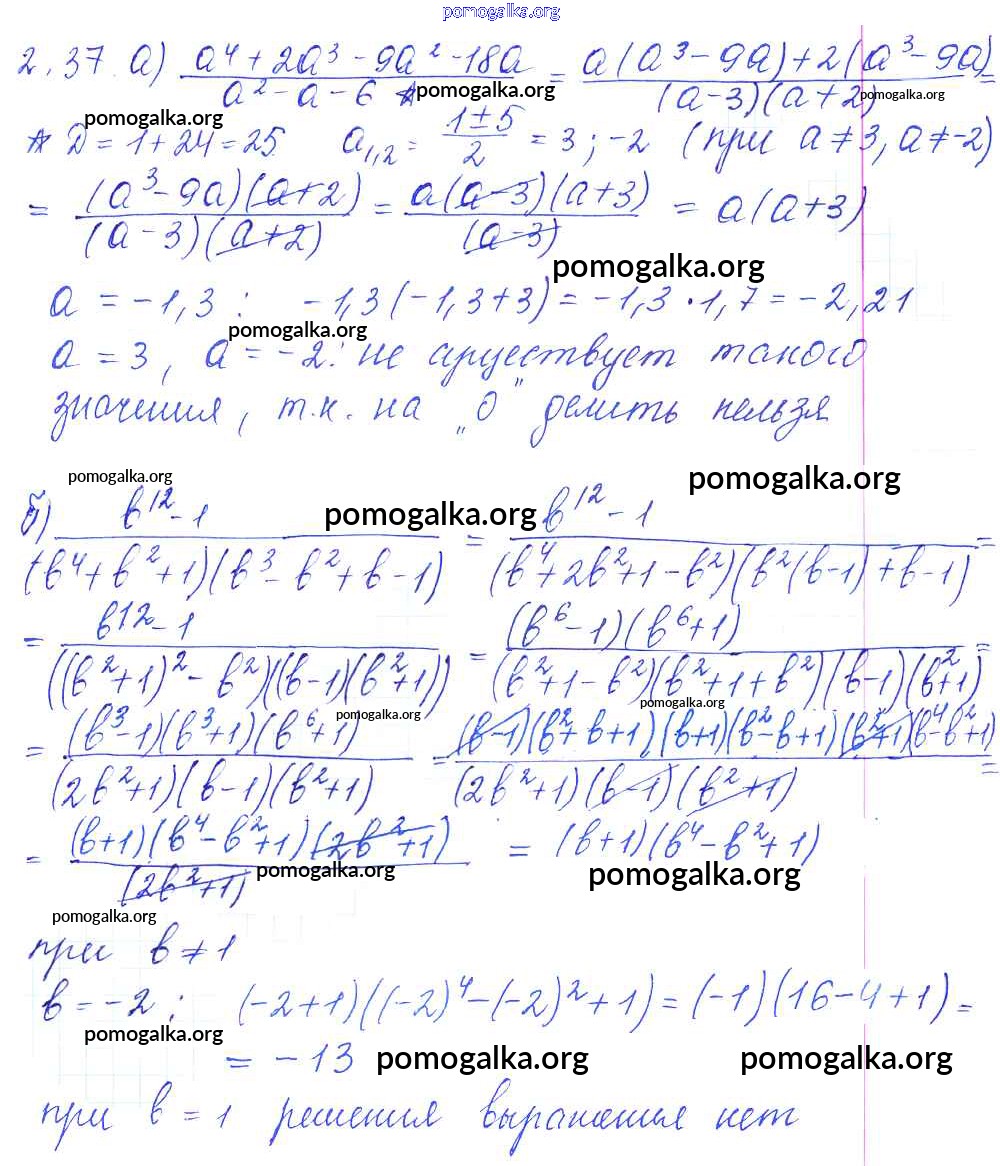 pomogalka.org
2.37 а) (a⁴ + 2a³ - 9a² - 18a)/(a² - a - 6) * pomogalka.org = (a(a³ - 9a) + 2(a³ - 9a))/((a-3)(a+2)) pomogalka.org =
pomogalka.org
* D = 1 + 24 = 25 a₁,₂ = (1±5)/2 = 3; -2 (при a ≠ 3, a ≠ -2)
= ((a³ - 9a)(a+2))/((a-3)(a+2)) = (a(a-3)(a+3))/((a-3)) = a(a+3)
pomogalka.org
a = -1,3 : -1,3(-1,3+3) = -1,3 · 1,7 = -2,21
pomogalka.org
a = 3, a = -2: не существует такого
значения, т.к. на „0" делить нельзя
pomogalka.org pomogalka.org
б) (b¹² - 1)/((b⁴ + b² + 1)(b³ - b² + b - 1)) pomogalka.org = (b¹² - 1)/((b⁴ + 2b² + 1 - b²)(b²(b-1) + b - 1)) =
= (b¹² - 1)/(((b²+1)² - b²)((b-1)(b²+1))) = ((b⁶ - 1)(b⁶+1))/((b²+1-b²)(b²+1+b²)(b-1)(b²+1)) =
pomogalka.org pomogalka.org
= ((b³-1)(b³+1)(b⁶+1))/((2b²+1)(b-1)(b²+1)) = ((b-1)(b²+b+1)(b+1)(b²-b+1)(b²+1)(b⁴-b²+1))/((2b²+1)(b-1)(b²+1)) =
= ((b+1)(b⁴-b²+1)(2b²+1))/((2b²+1)) = (b+1)(b⁴-b²+1)
pomogalka.org pomogalka.org
pomogalka.org
при b ≠ 1
b = -2; (-2+1)((-2)⁴-(-2)²+1) = (-1)(16-4+1) =
pomogalka.org
= -13 pomogalka.org pomogalka.org
при b = 1 решения выраженья нет